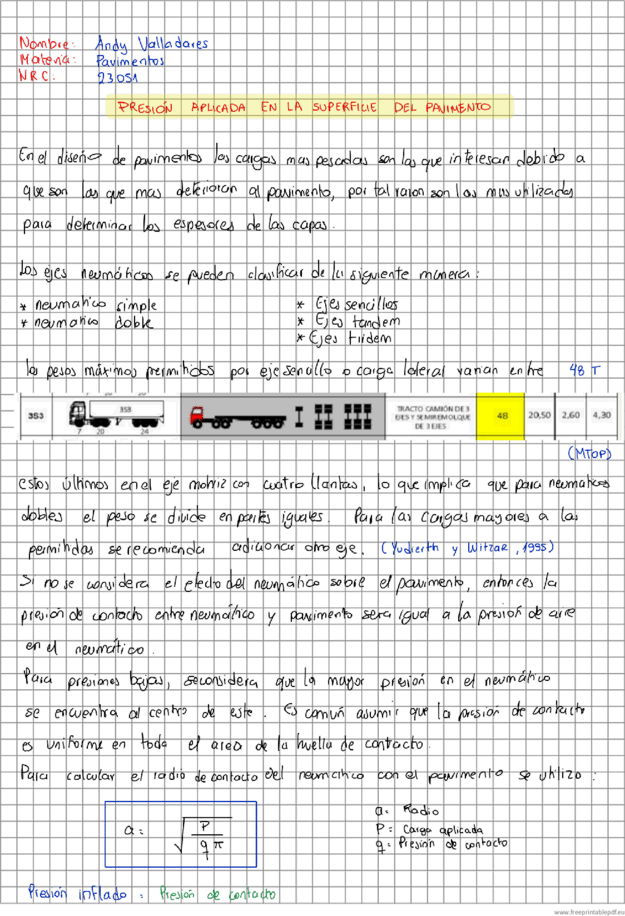 Nombre: Andy Valladares
Materia: Pavimentos
NRC: 23051
PRESIÓN APLICADA EN LA SUPERFICIE DEL PAVIMENTO
En el diseño de pavimentos las cargas mas pesadas son las que interesan debido a
que son las que mas deterioran al pavimento, por tal razon son las mas utilizadas
para determinar los espesores de las capas.
Los ejes neumáticos se pueden clasificar de la siguiente manera:
* neumatico simple * Ejes sencillos
* neumatico doble * Ejes tandem
* Ejes tridem
los pesos máximos permitidos por eje sencillo o carga lateral varian entre 48 T
3S3 3S3 7 20 24 TRACTO CAMIÓN DE 3 EJES Y SEMIREMOLQUE DE 3 EJES 48 20,50 2,60 4,30
(MTOP)
estos últimos en el eje motriz con cuatro llantas, lo que implica que para neumaticos
dobles el peso se divide en partes iguales. Para las cargas mayores a las
permitidas se recomienda adicionar otro eje. (Yudierth y Witzar, 1995)
Si no se considera el efecto del neumático sobre el pavimento, entonces la
presión de contacto entre neumático y pavimento sera igual a la presión de aire
en el neumático.
Para presiones bajas, se considera que la mayor presión en el neumático
se encuentra al centro de este. Es comun asumir que la presion de contacto
es uniforme en toda el area de la huella de contacto.
Para calcular el radio de contacto del neumatico con el pavimento se utiliza:
a = √(P / q π)
a = Radio
P = Carga aplicada
q = Presión de contacto
Presión inflado = Presión de contacto
www.freeprintablepdf.eu